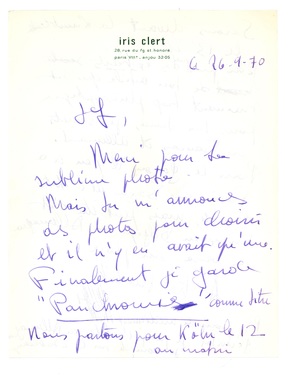 iris clert
28 rue du fg st honoré
paris VIIIe. anjou 32·05
Le 26-9-70
J F,
Merci pour ta
sublime photo.
Mais tu m'annonces
des photos pour choisir
et il n'y en avait qu'une.
Finalement je garde
"Panchounis" comme titre
Nous partons pour Köln le 12
au matin